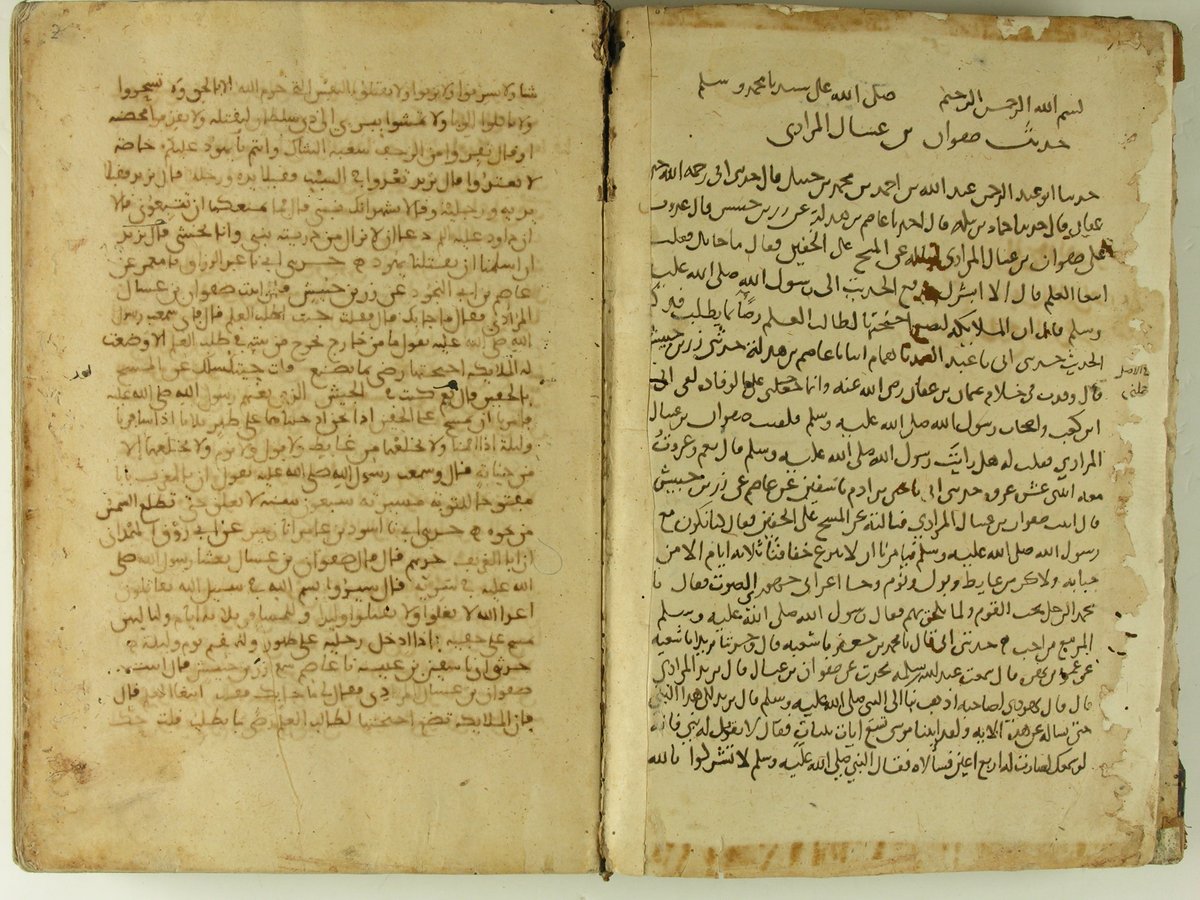 بسم الله الرحمن الرحيم صلى الله على سيدنا محمد وسلم
حديث صفوان بن عسال المرادي
حدثنا ابو عبد الرحمن عبد الله بن احمد بن محمد بن حنبل قال حدثني ابي رحمه الله
عفان قال حدثنا حماد بن سلمة قال اخبرنا عاصم بن بهدلة عن زر بن حبيش قال غدوت
على صفوان بن عسال المرادي اسله عن المسح على الخفين فقال ما جا بك فقلت
ابتغا العلم قال الا ابشرك ورفع الحديث الى رسول الله صلى الله عليه
وسلم قال ان الملائكة لتضع اجنحتها لطالب العلم رضا بما يطلب فذكر
الحديث حدثني ابي نا عبد الصمد نا همام انا عاصم بن بهدلة حدثني زر بن حبيش
قال وفدت في خلافة عثمان بن عفان رضي الله عنه وانما حملني على الوفادة لقي ابي
ابن كعب واصحاب رسول الله صلى الله عليه وسلم فلقيت صفوان بن عسال
المرادي فقلت له هل رايت رسول الله صلى الله عليه وسلم قال نعم وغزوت
معه اثنتي عشر غزوة حدثني ابي نا يحيى بن ادم نا سفين عن عاصم عن زر بن حبيش
قال اتيت صفوان بن عسال المرادي فسالته عن المسح على الخفين فقال كنا نكون مع
رسول الله صلى الله عليه وسلم فيامرنا ان لا ننزع خفافنا ثلاثة ايام الا من
جنابة ولاكن من غايط وبول ونوم وجا اعرابي جهوري الصوت فقال يا
محمد الرجل يحب القوم ولما يلحق بهم فقال رسول الله صلى الله عليه وسلم
المر مع من احب حدثني ابي قال نا محمد بن جعفر نا شعبة قال وحدثنا يزيد انا شعبة
عن عمرو بن مرة قال سمعت عبد الله بن سلمة يحدث عن صفوان بن عسال قال يزيد المرادي
قال قال يهودي لصاحبه اذهب بنا الى النبي صلى الله عليه وسلم قال يزيد الى هذا النبي
حتى نساله عن هذه الاية ولقد اتينا موسى تسع ايات بينات فقال لا تقل له نبي فانه
لو سمعك لصارت له اربع اعين فسالاه فقال النبي صلى الله عليه وسلم لا تشركوا بالله
شيا ولا تسرقوا ولا تزنوا ولا تقتلوا النفس التي حرم الله الا بالحق ولا تسحروا
ولا تاكلوا الربا ولا تمشوا ببري الى ذي سلطان ليقتله ولا تقذفوا محصنة
او قال تفروا من الزحف شعبة الشاك وانتم يا يهود عليكم خاصة
لا تعتدوا قال يزيد تعدوا في السبت فقبلا يده ورجله قال يزيد فقبلا
يديه ورجليه وقالا نشهد انك نبي قال فما منعكما ان تتبعوني قالا
ان داود عليه السلام دعا ان لا يزال من ذريته نبي وانا نخشى قال يزيد
ان اسلمنا ان تقتلنا يهود حدثني ابي نا عبد الرزاق نا معمر عن
عاصم بن ابي النجود عن زر بن حبيش قال اتيت صفوان بن عسال
المرادي فقال ما جا بك قال فقلت جيت اطلب العلم قال فاني سمعت رسول
الله صلى الله عليه يقول ما من خارج يخرج من بيته في طلب العلم الا وضعت
له الملايكة اجنحتها رضى بما يصنع قال جيت اسلك عن المسح
بالخفين قال نعم كنت في الجيش الذي بعثهم رسول الله صلى الله عليه
فامرنا ان نمسح على الخفين اذا نحن ادخلناهما على طهر ثلاثا اذا سافرنا
وليلة اذا اقمنا ولا نخلعهما من غايط ولا بول ولا نوم ولا نخلعهما الا
من جنابة قال وسمعت رسول الله صلى الله عليه يقول ان بالمغرب بابا
مفتوحا للتوبة مسيرته سبعون سنة لا يغلق حتى تطلع الشمس
من نحوه حدثني ابي نا اسود بن عامر انا زهير عن ابي روق الهمداني
ان ابا الغريف حدثهم قال قال صفوان بن عسال بعثنا رسول الله صلى
الله عليه في سرية قال سيروا بسم الله في سبيل الله تقاتلون
اعدا الله لا تغلوا ولا تقتلوا وليدا وللمسافر ثلاثة ايام ولياليهن
يمسح على خفيه اذا ادخل رجليه على طهور وللمقيم يوم وليلة
حدثني ابي نا سفين بن عيينة نا عاصم سمع زر بن حبيش قال اتيت
صفوان بن عسال المرادي فقال لي ما جا بك فقلت ابتغا العلم قال
فان الملايكة تضع اجنحتها لطالب العلم رضى بما يطلب قلت حك